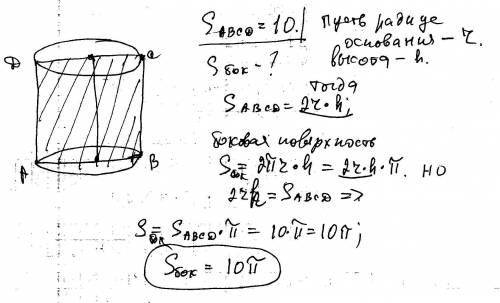 D C
A B
S_ABCD = 10.
Пусть радиус
основания – r.
высота – h.
S_бок - ?
тогда
S_ABCD = 2r·h;
боковая поверхность
S_бок = 2πr·h = 2r·h·π. но
2rh = S_ABCD =>
S_б = S_ABCD·π = 10·π = 10π;
S_бок = 10π